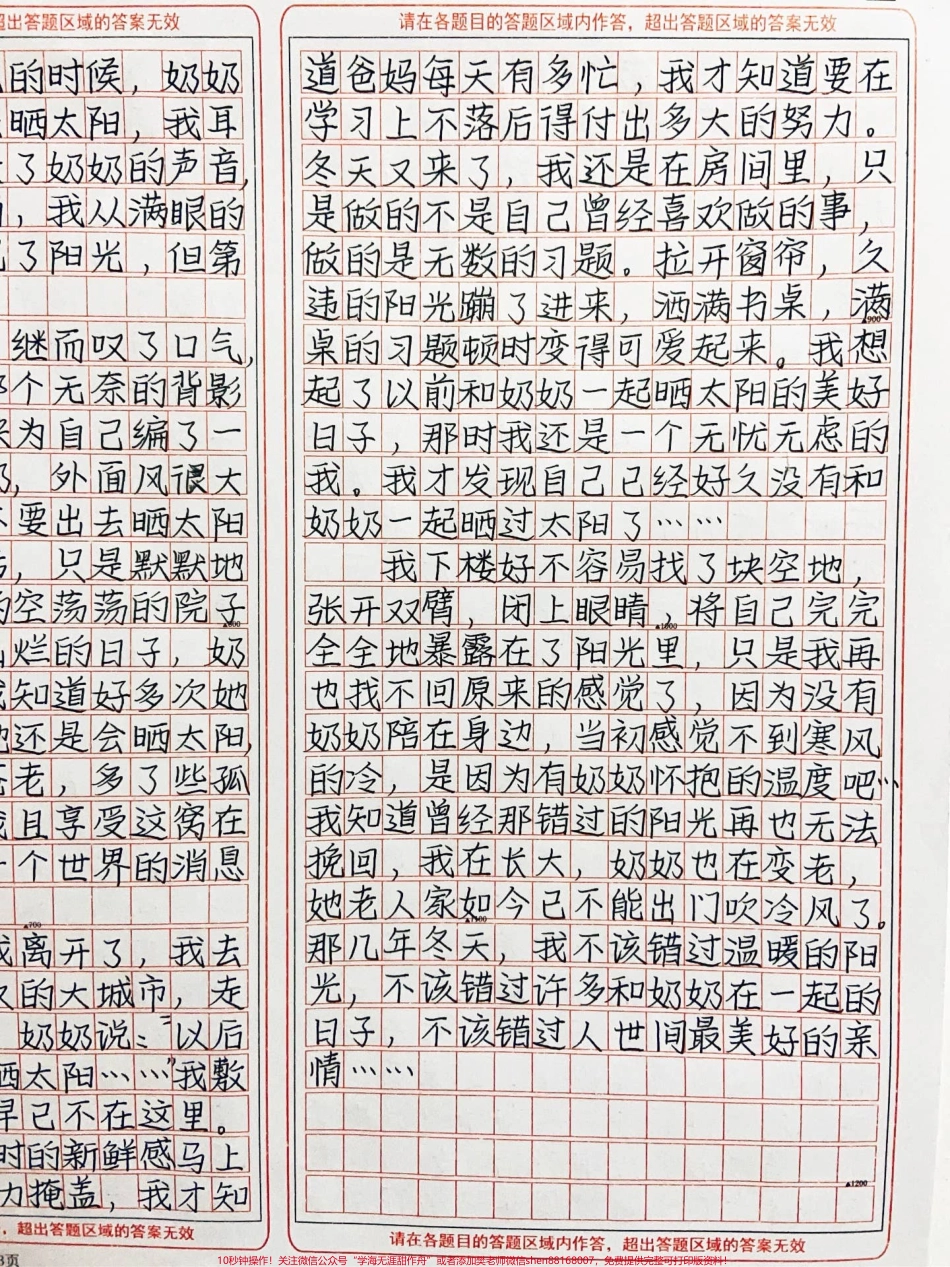 超出答题区域的答案无效
的时候，奶奶
晒太阳，我耳
了奶奶的声音，
，我从满眼的
了阳光，但第
继而叹了口气，
个无奈的背影
为自己编了一
，外面风很大
要出去晒太阳
，只是默默地
空荡荡的院子
▲600
烂的日子，奶
知道好多次她
还是会晒太阳，
老，多了些孤
且享受这窝在
个世界的消息
▲700
离开了，我去
的大城市，走
奶奶说：“以后
晒太阳……”我敷
早已不在这里。
时的新鲜感马上
力掩盖，我才知
，超出答题区域的答案无效
3页
请在各题目的答题区域内作答，超出答题区域的答案无效
道爸妈每天有多忙，我才知道要在
学习上不落后得付出多大的努力。
冬天又来了，我还是在房间里，只
是做的不是自己曾经喜欢做的事，
做的是无数的习题。拉开窗帘，久
违的阳光蹦了进来，洒满书桌，满
▲900
桌的习题顿时变得可爱起来。我想
起了以前和奶奶一起晒太阳的美好
日子，那时我还是一个无忧无虑的
我。我才发现自己已经好久没有和
奶奶一起晒过太阳了……
我下楼好不容易找了块空地，
张开双臂，闭上眼睛，将自己完完
▲1000
全全地暴露在了阳光里，只是我再
也找不回原来的感觉了，因为没有
奶奶陪在身边，当初感觉不到寒风
的冷，是因为有奶奶怀抱的温度吧…
我知道曾经那错过的阳光再也无法
挽回，我在长大，奶奶也在变老，
她老人家如今已不能出门吹冷风了。
▲1100
那几年冬天，我不该错过温暖的阳
光，不该错过许多和奶奶在一起的
日子，不该错过人世间最美好的亲
情……
▲1200
请在各题目的答题区域内作答，超出答题区域的答案无效
10秒钟操作！关注微信公众号“学海无涯甜作舟”或者添加樊老师微信shen88168007，免费提供完整可打印版资料！